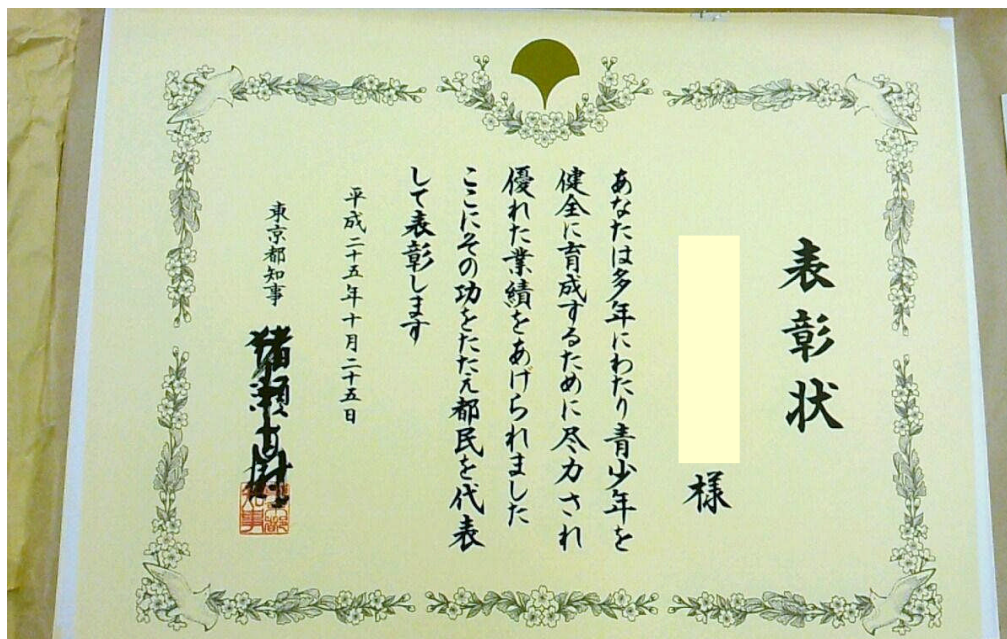 表彰状
様
あなたは多年にわたり青少年を
健全に育成するために尽力され
優れた業績をあげられました
ここにその功をたたえ都民を代表
して表彰します
平成二十五年十月二十五日
東京都知事
猪瀬直樹